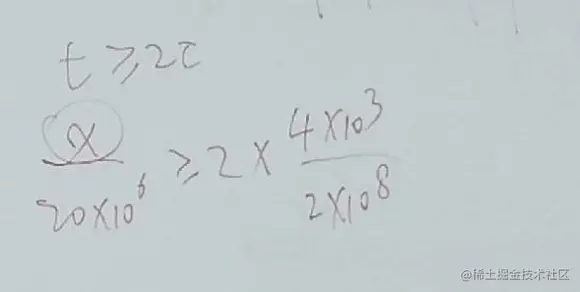 t ≥ 2τ
x/(20×10^6) ≥ 2 × (4×10^3)/(2×10^8)
@稀土掘金技术社区